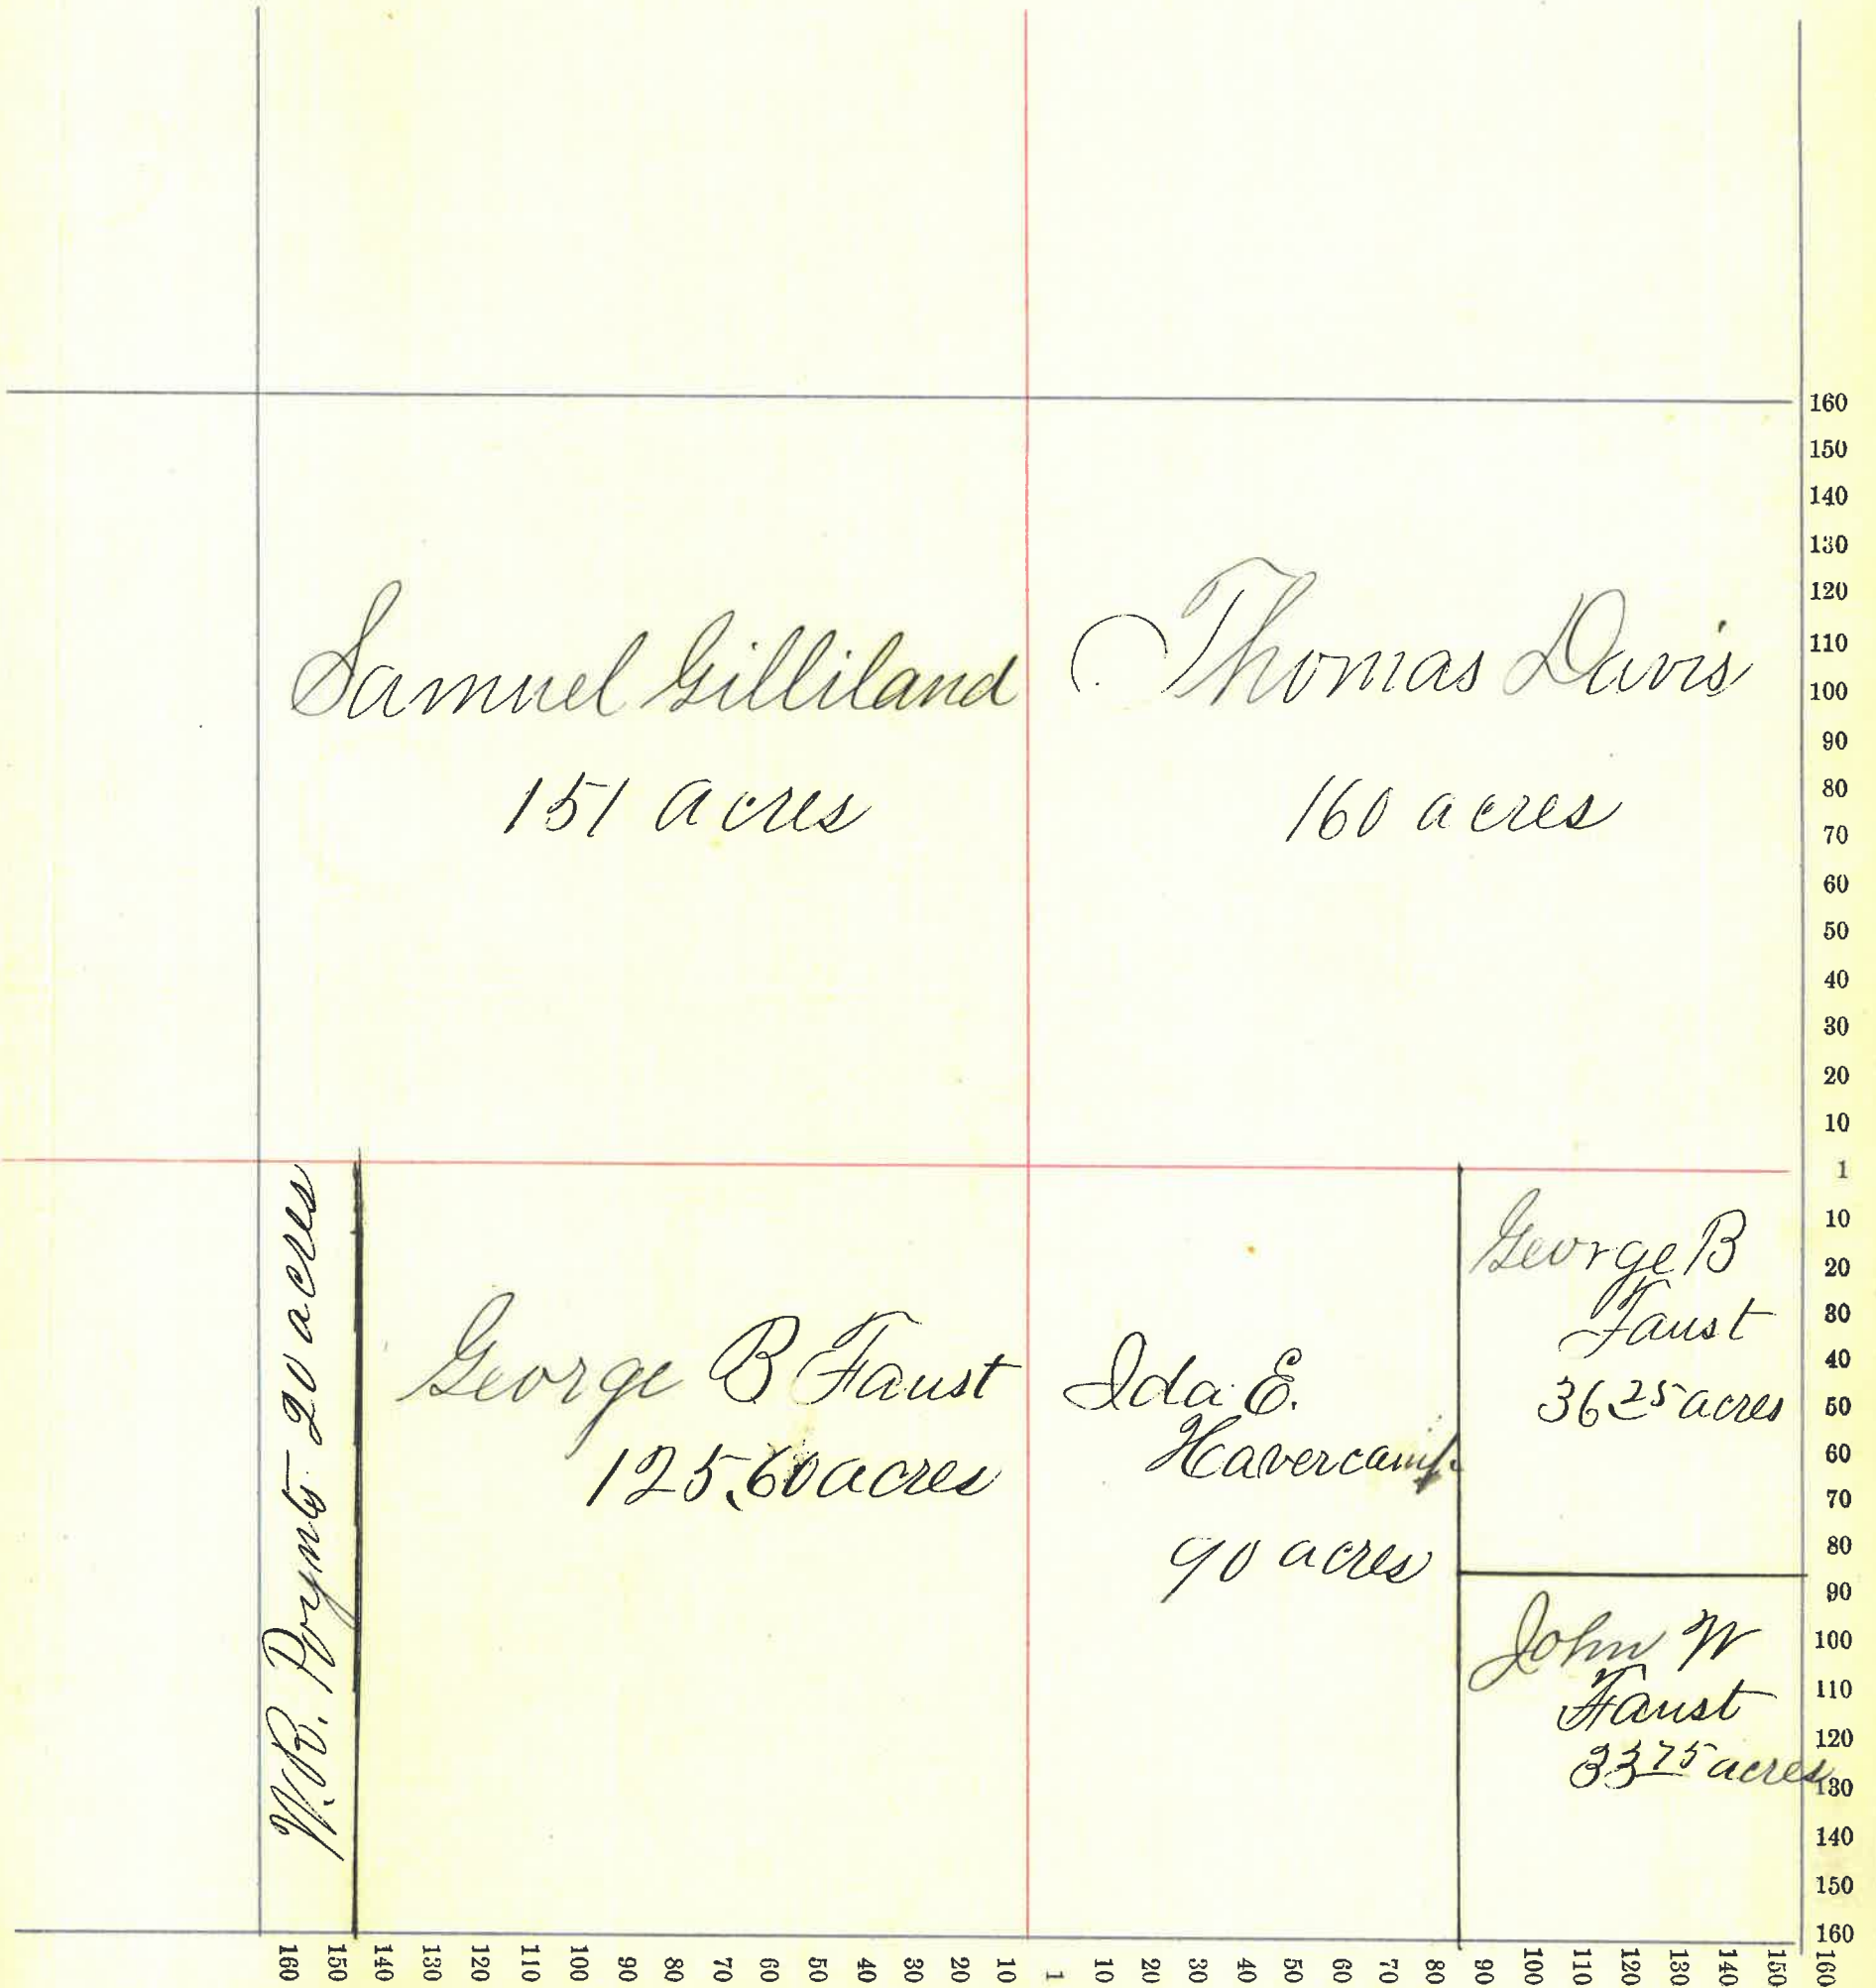 Samuel Gilliland
151 acres
Thomas Davis
160 acres
W.R. 20 acres
George B Faust
125.60 acres
Ida E.
Havercamp
90 acres
George B
Faust
36 25 acres
John W
Faust
33 75 acres
160
150
140
130
120
110
100
90
80
70
60
50
40
30
20
10
1
10
20
30
40
50
60
70
80
90
100
110
120
130
140
150
160
160 150 140 130 120 110 100 90 80 70 60 50 40 30 20 10 1 10 20 30 40 50 60 70 80 90 100 110 120 130 140 150 160